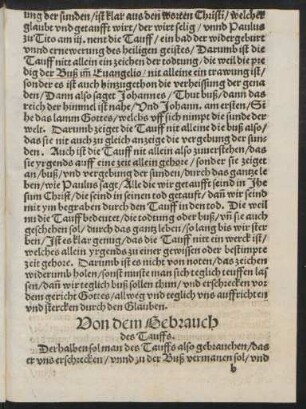 ung der sunden/ist klar aus den worten Christi/welcher
glaubt vnd getaufft wirt/der wirt selig/vnnd Paulus
zu Tito am iij. nent die Tauff/ein bad der widergeburt
vnnd ernewerung des heiligen geistes/Darumb ist die
Tauff nitt allein ein zeichen der todtung/die weil die pre
dig der Buß im Euangelio/nit alleine ein trawung ist/
sonder es ist auch hinzugethon die verheissung der gena
den/Dann also saget Johannes/Thut buß/dann das
reich der himmel ist nahe/Vnd Johann. am ersten/Si
he das lamm Gottes/welchs vff sich nimpt die sunde der
welt. Darumb zeiget die Tauff nit alleine die buß also/
das sie nit auch zu gleich anzeige die vergebung der suns
den. Auch ist die Tauff nit allein also zuuerstehen/das
sie yrgends auff eine zeit allein gehore/sonder sie zeiget
an/buß/vnd vergebung der sunden/durch das gantze le
ben/wie Paulus sagt/Alle die wir getaufft seind in Jhe
sum Christ/die seind in seinen tod getaufft/dañ wir seind
mit ym begraben durch den Tauff in den tod. Die weil
nu die Tauff bedeutet/die todtung oder buß/vñ sie auch
geschehen sol/durch das gantz leben/so lang bis wir ster
ben/Jst es klar genug/das die Tauff nitt ein werck ist/
welches allein yrgends zu einer gewissen oder bestimpte
zeit gehore. Darumb ist es nicht von noten/das zeichen
widerumb holen/sonst muste man sich teglich teuffen las
sen/dañ wir teglich buß sollen thun/vnd erschrecken vor
dem gericht Gottes/allweg vnd teglich vns auffrichten
vnd stercken durch den Glauben.
Von dem Gebrauch
des Tauffs.
Derhalben sol man des Tauffs also gebrauchen/das
er vns erschrecken/vnnd zu der Buß vermanen sol/vnd
b